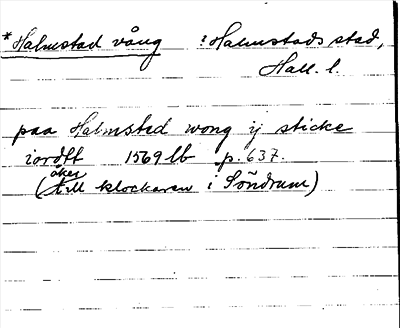 *Halmstad vång : Halmstads stad,
Hall. l.
paa Halmsted wong ij sticke
iordtt 1569 lb p. 637.
åker
(till klockaren i Söndrum)